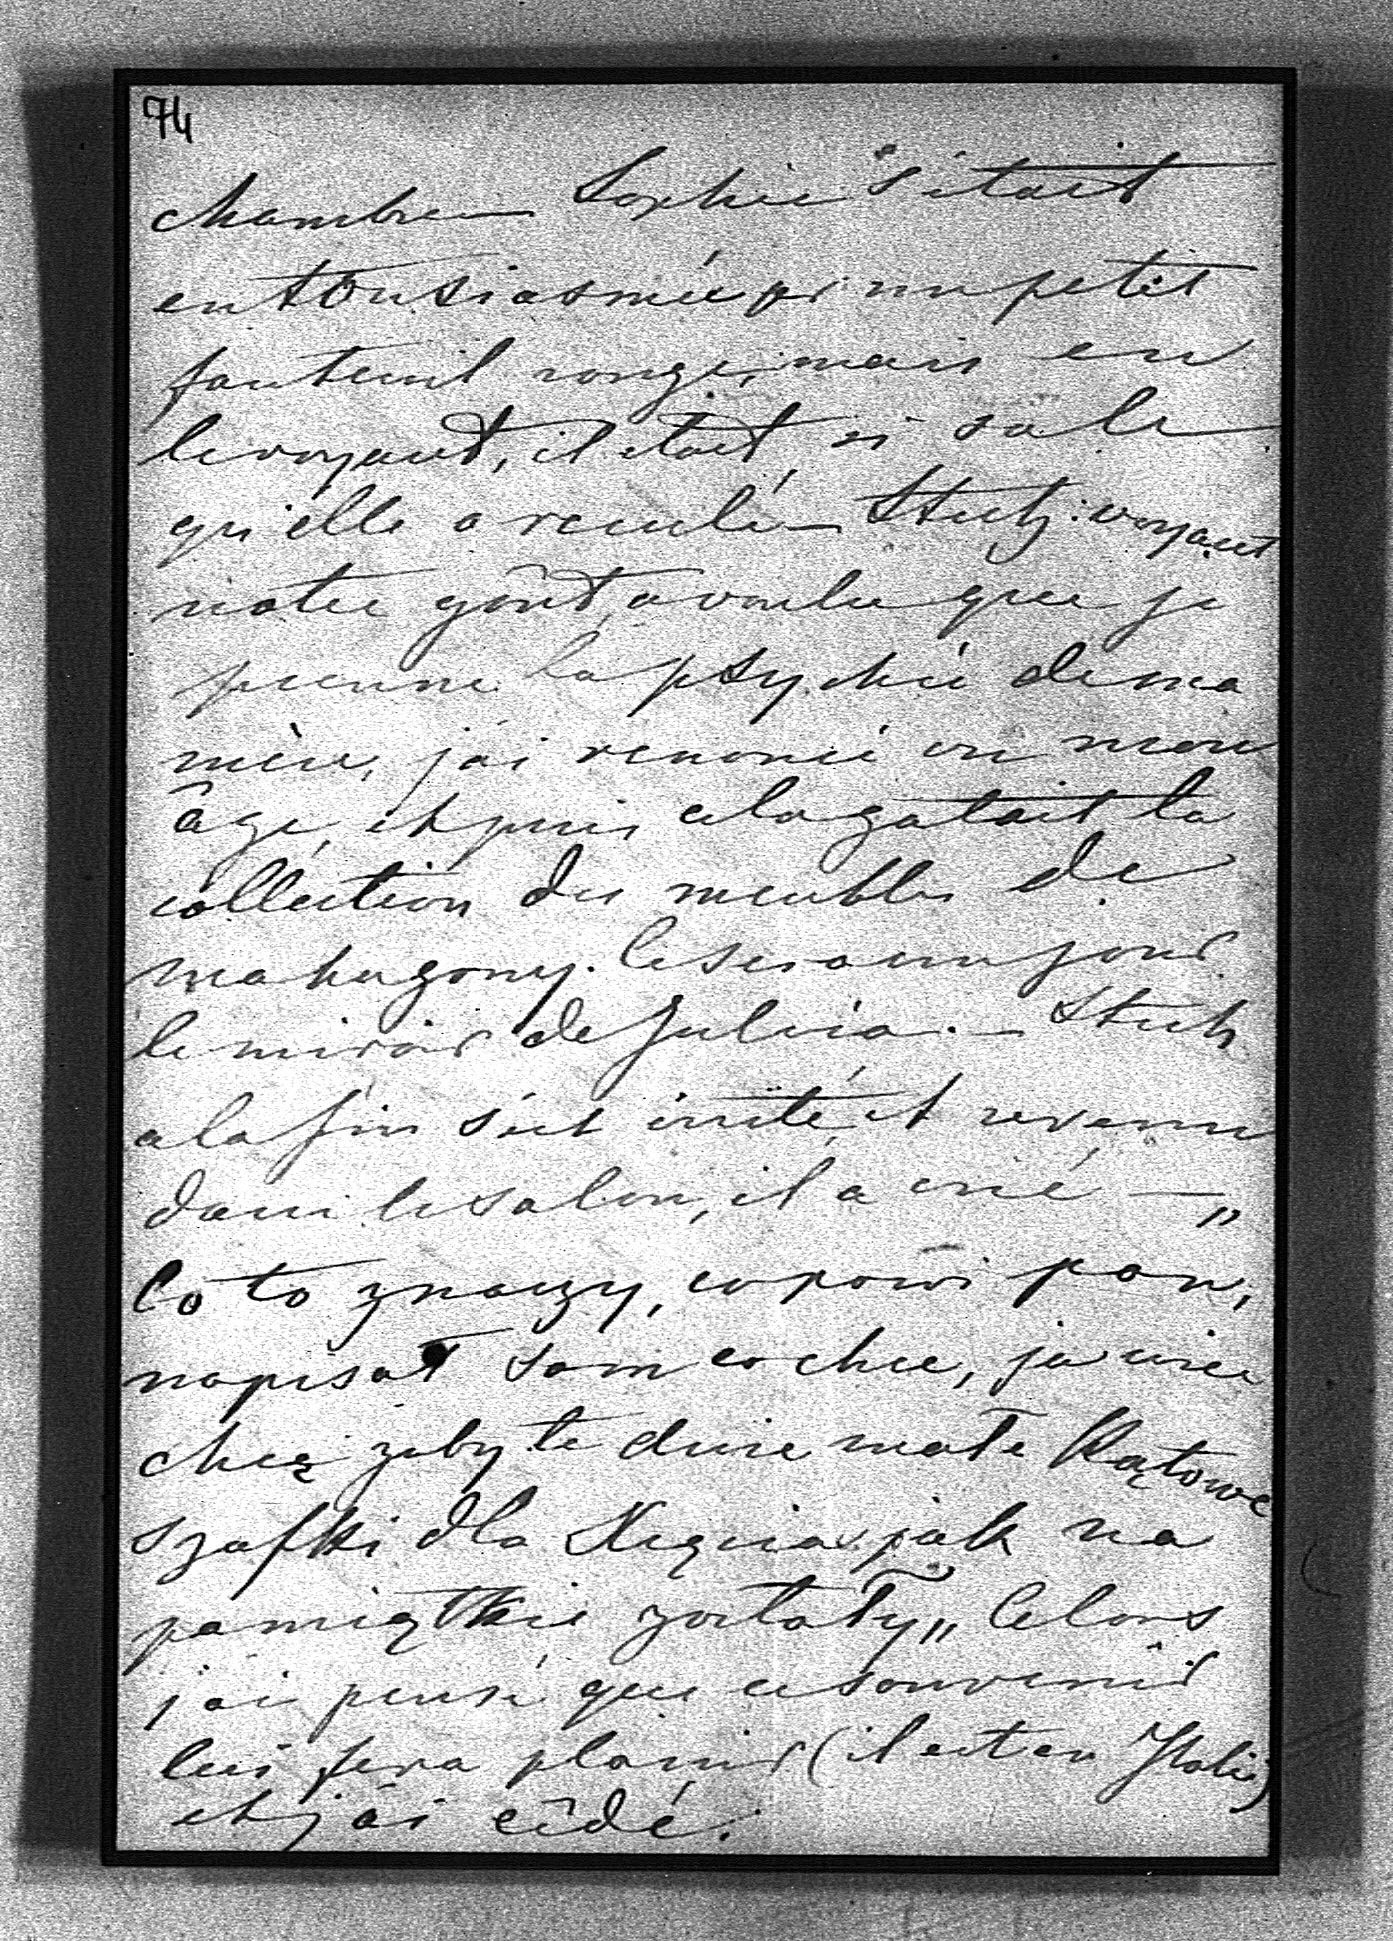 74
chambre — Sophie s'était
entousiasmée pr un petit
fauteuil rouge, mais en
le voyant, il était si sale
qu'elle a reculé — Stutz: voyant
notre goût, a voulu que je
prenne la psyché de ma
mère, j'ai renoncé vu mon
âge, et puis cela gatait la
colléction des meubles de
mahagony. Ce sera un jour
le miroir de Julcia. — Stutz
a la fin s'est irrité, et revenu
dans le salon, il a crié — „
Co to znaczy, co powi pan,
napisał sam co chce, ja nie
chcę zeby te dwie małe Kątowe
szafki dla Xięcia jak na
pamiątkie zostały„ Alors
j'ai pensé que ce souvenir
lui fera plaisir (il est en Italie)
et j'ai cédé.